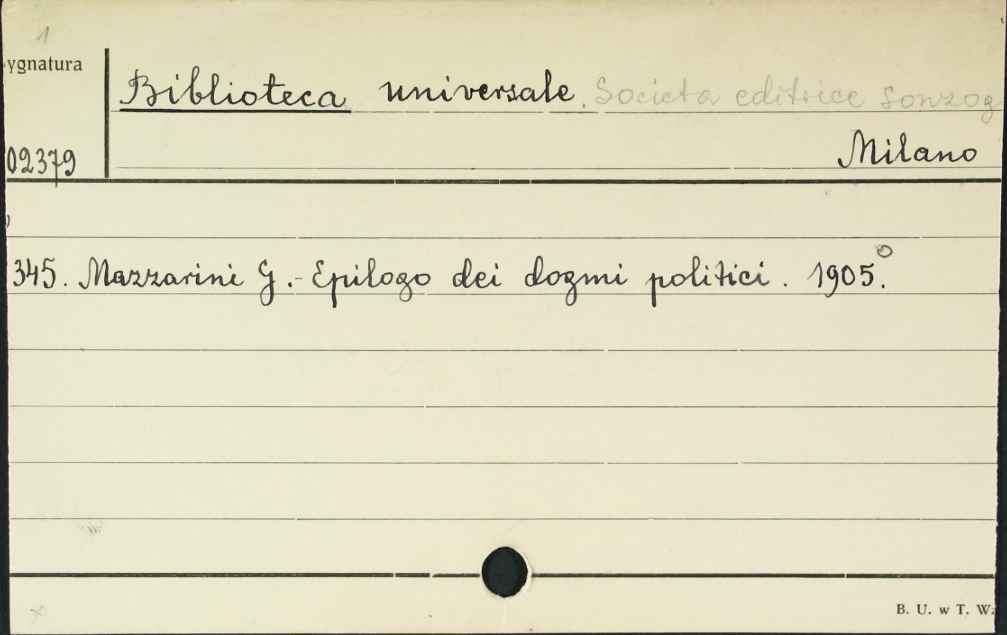 1
ygnatura
Biblioteca universale. Societa editrice Sonzog
02379
Milano
345. Mazzarini G. - Epilogo dei dogmi politici. 1905.°
B. U. w T. W.